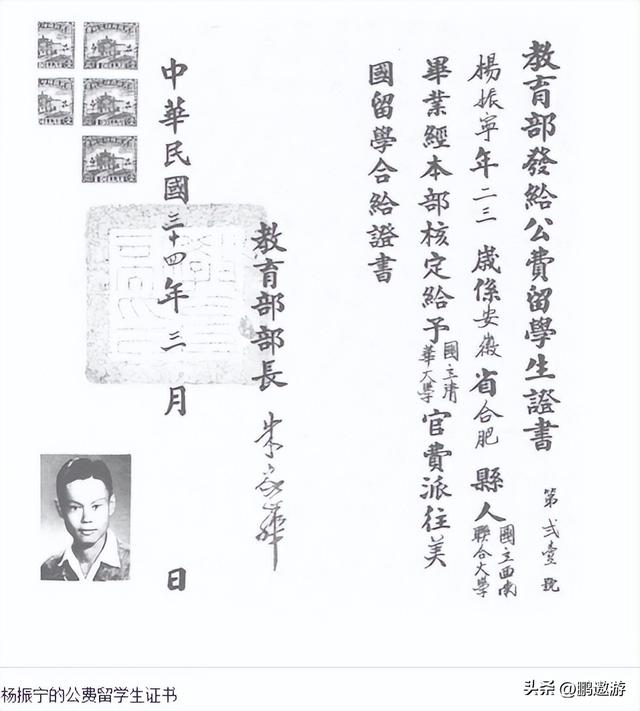 教育部發給公費留學生證書
第弍壹號
楊振寧年二三歲係安徽省合肥縣人
國立西南
聯合大學
畢業經本部核定給予國立清華大學官費派往美
國留學合給證書
教育部部長 朱家驊
中華民國三十四年三月 日
杨振宁的公费留学生证书
头条 @鹏遨游